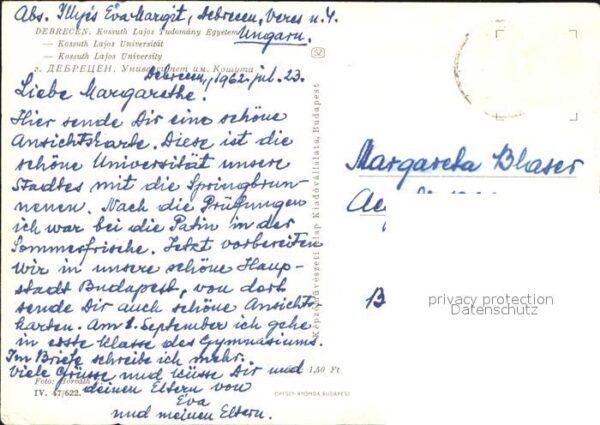 Abs. Illyés Éva Margit, Debrecen, Veres u. 4.
DEBRECEN. Kossuth Lajos Tudomány Egyetem
Ungarn.
— Kossuth Lajos Universität
— Kossuth Lajos University
г. ДЕБРЕЦЕН. Университет им. Кошута
Debrecen, 1962. jul. 23.
Liebe Margarethe!
Hier sende Dir eine schöne
Ansichtskarte. Diese ist die
schöne Universität unsere
Stadtes mit die Springbrun-
nenen. Nach die Prüfungen
ich war bei die Patin in der
Sommerfrische. Jetzt vorbereiten
wir in unsere schöne Haup-
stadt Budapest, von dort
sende Dir auch schöne Ansichts-
karten. Am 1. September ich gehe
in erste Klasse des Gymnasiums.
Im Briefe schreibe ich mehr.
Viele Grüsse und Küsse Dir und
1,50 Ft
deinen Eltern von
Foto: Horváth
Éva
IV. 47/622.
und meinen Eltern.
OFFSET-NYOMDA BUDAPEST
Képzőművészeti Alap Kiadóvállalata, Budapest
Margareta Blaser
privacy protection
Datenschutz